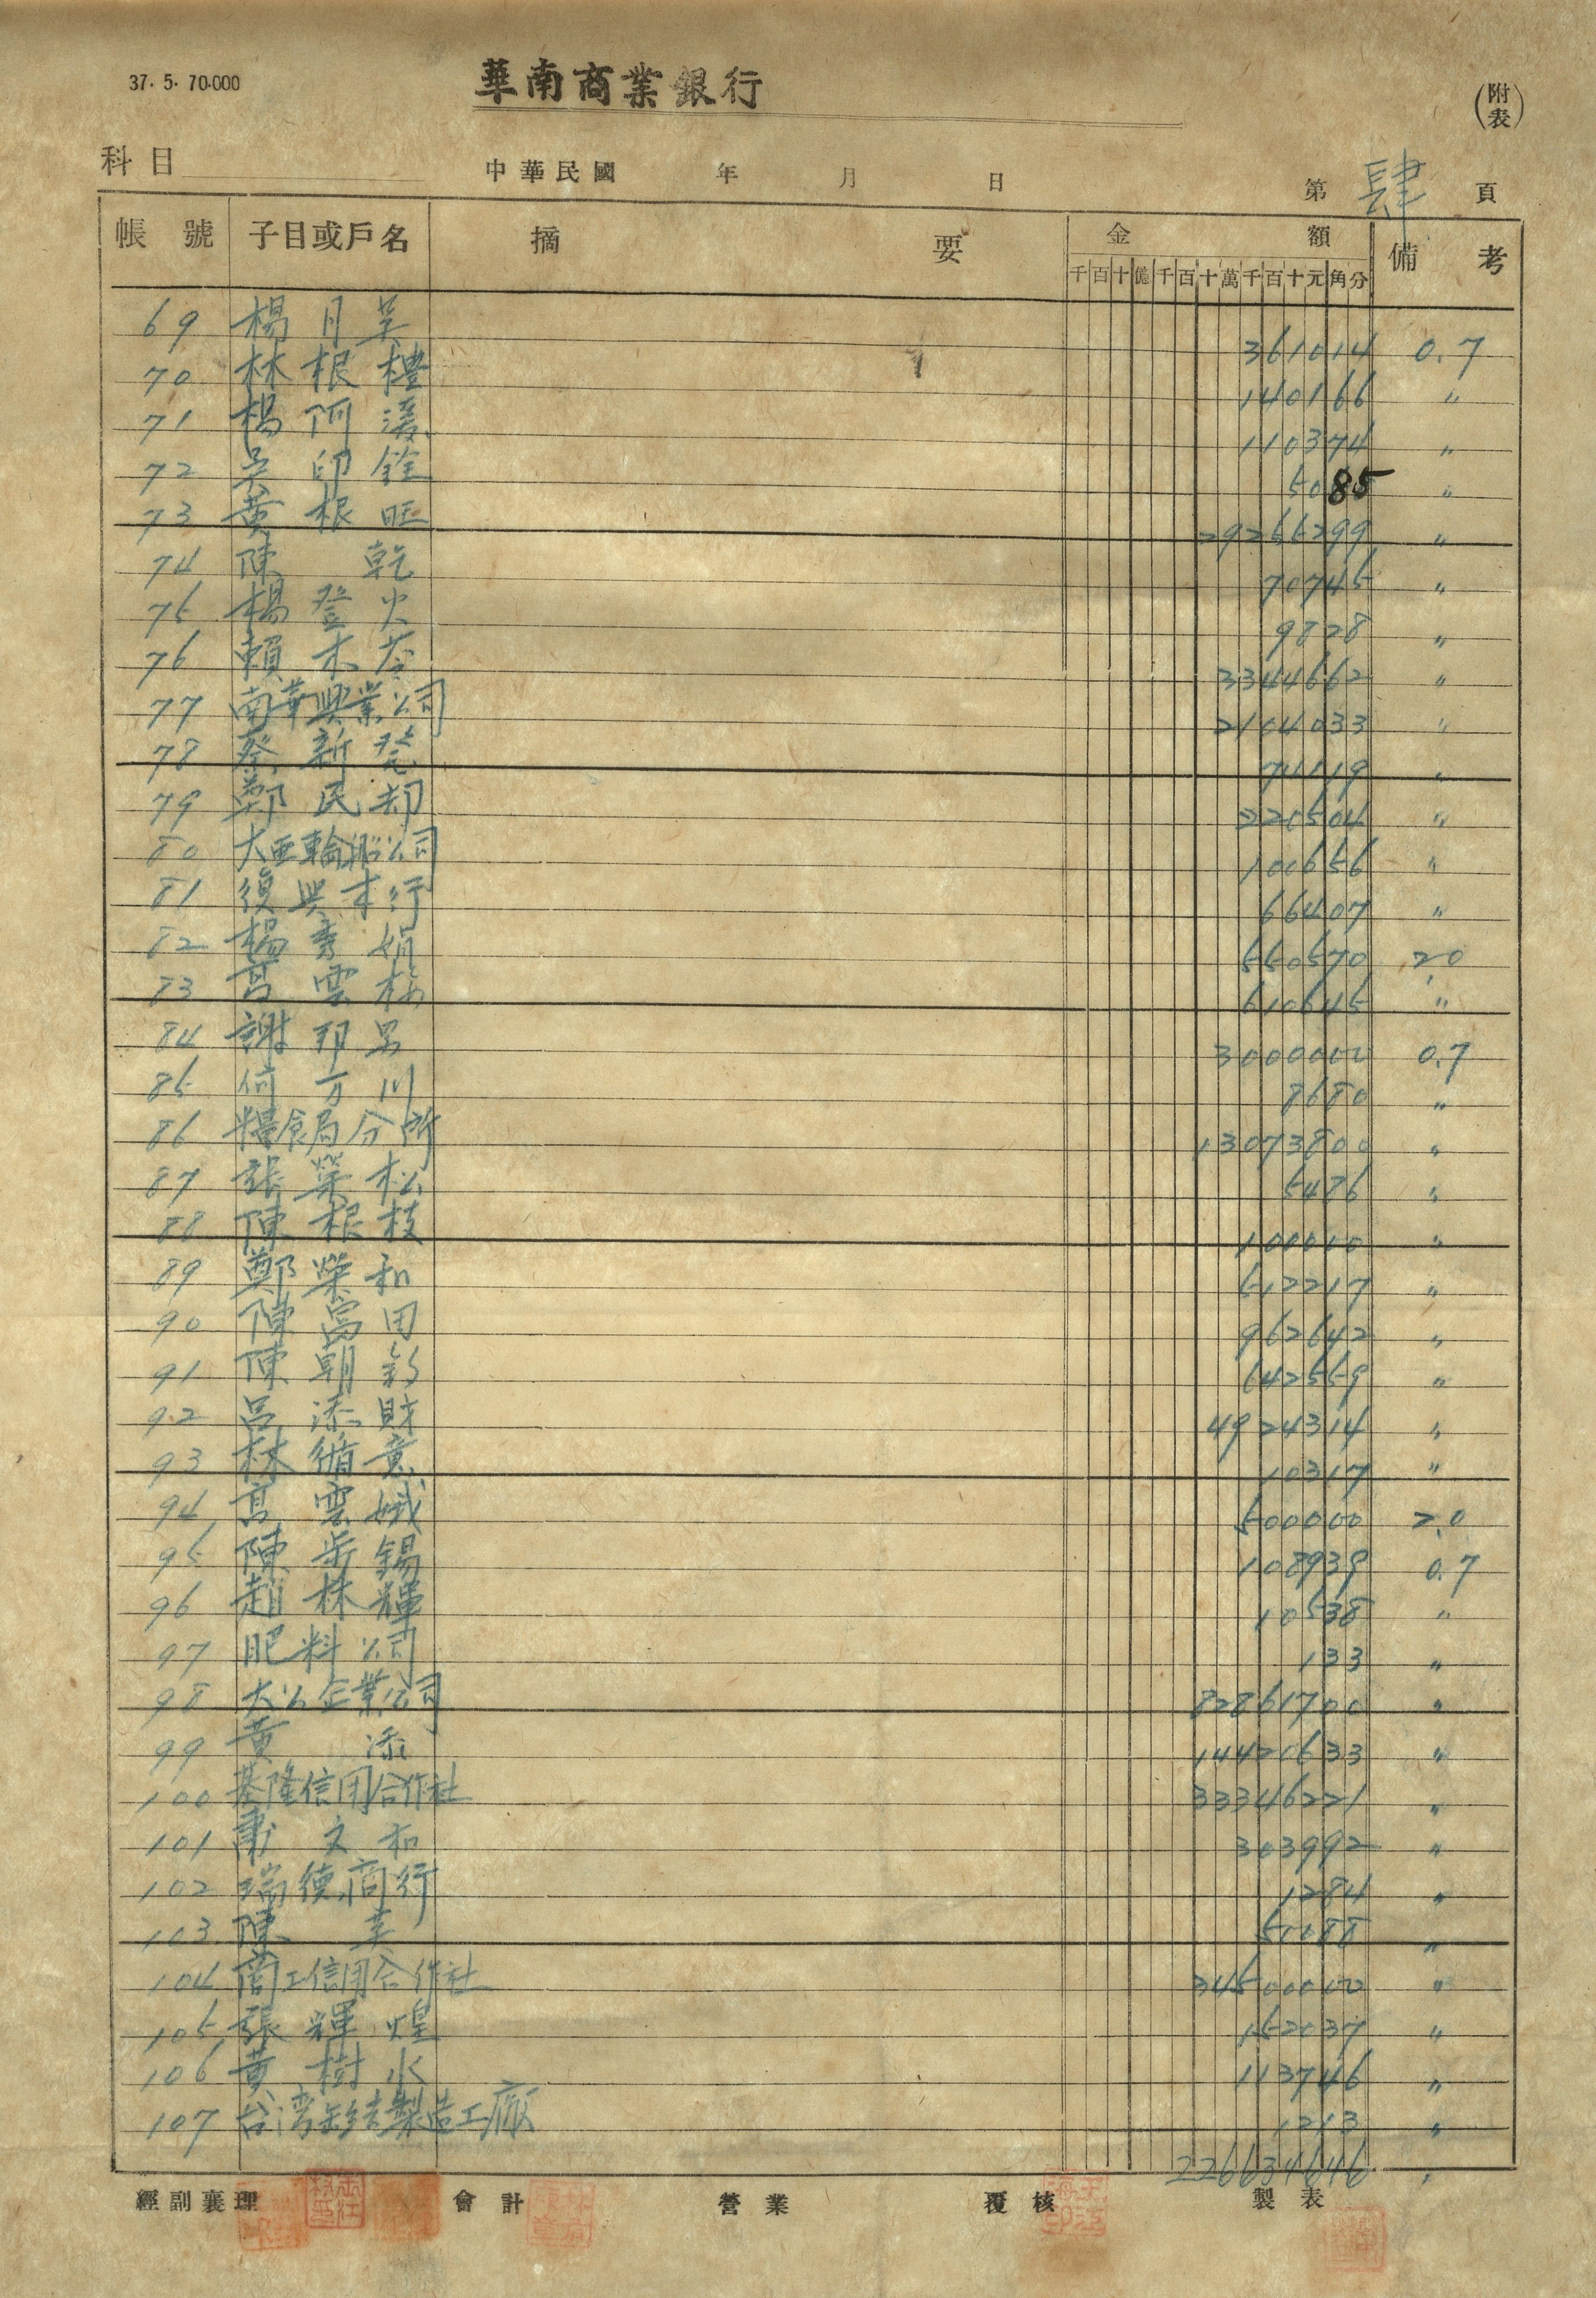 37. 5. 70.000
華南商業銀行
(附表)
科目 中華民國 年 月 日 第 肆 頁
帳號 子目或戶名 摘要 金額 備考
千百十億千百十萬千百十元角分
69 楊月英 361014 0.7
70 林根樓 140166 〃
71 楊阿溪 110374 〃
72 吳印銓 5085 〃
73 黃根旺 29266299 〃
74 陳乾 70745 〃
75 楊登火 9828 〃
76 賴木苓 3344662 〃
77 南華興業公司 2104033 〃
78 蔡新登 74119 〃
79 鄭民却 221504 〃
80 大亜輪船公司 100656 〃
81 復興木行 66407 〃
82 楊秀娟 550570 20
83 高雲梅 610645 〃
84 謝邦男 3000000 0.7
85 何万川 8680 〃
86 糧食局分所 13073800 〃
87 張葉松 5486 〃
88 陳根枝 100000 〃
89 鄭榮和 612217 〃
90 陳萬田 962642 〃
91 陳朝 642559 〃
92 呂添財 4924314 〃
93 林循意 10317 〃
94 高雲娥 500000 2.0
95 陳岳錫 108939 0.7
96 趙株輝 10538 〃
97 肥料公司 133 〃
98 大公企業公司 82861700 〃
99 黃添 14420633 〃
100 基隆信用合作社 33346221 〃
101 蕭文和 303992 〃
102 瑞德商行 1284 〃
103 陳幸 50088 〃
104 商工信用合作社 34500000 〃
105 張輝煌 152037 〃
106 黃樹水 113746 〃
107 台湾 製造工廠 1213 〃
226634646
經副襄理 會計 營業 覆核 製表